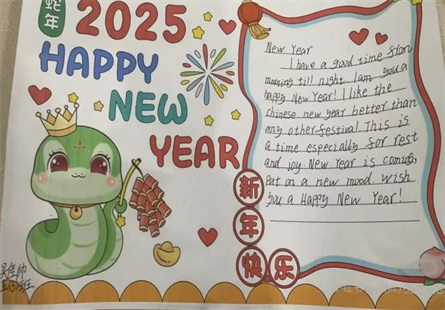 蛇年
2025
HAPPY
NEW
YEAR
New Year
I have a good time from
morning till night. I am you a
happy New Year! I like the
chinese new year better than
any other festival. This is
a time especially for rest
and joy. New Year is coming,
Put on a new mood. wish
you a Happy New Year!
新年快乐